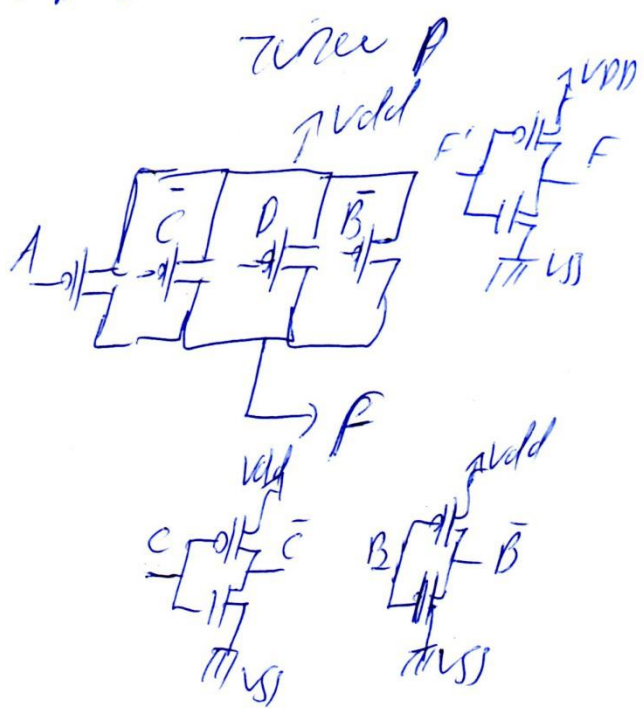 P
Vdd
VDD
F' F
VSS
A C̄ D B̄
F
Vdd
C C̄
VSS
Vdd
B B̄
VSS